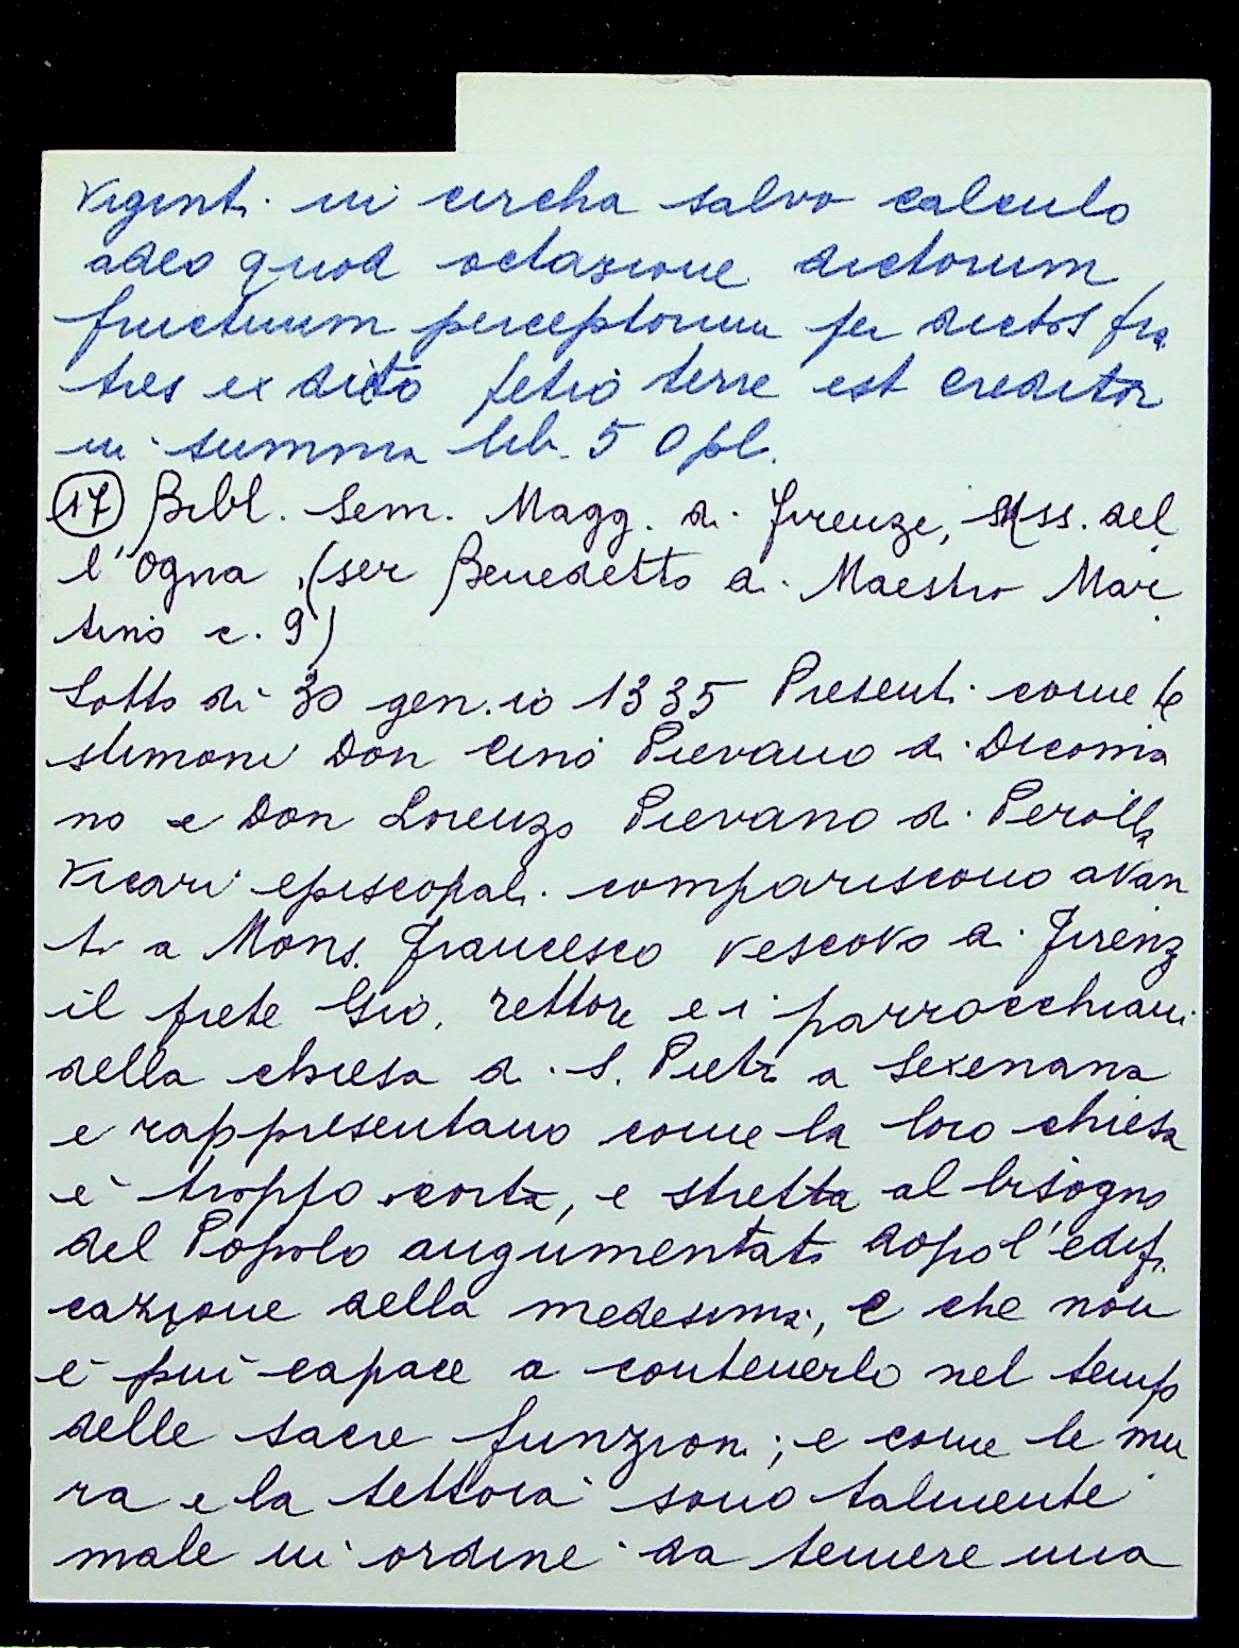 viginti in circha salvo calculo
adeo quod octazione dictorum
fructuum perceptorum per dictos fra
tres ex dicto petio terre est creditor
in summa lib. 50 pl.
(17) Bibl. Sem. Magg. di Firenze, Mss. del
l'Ogna (ser Benedetto di Maestro Mar
tino c. 9)
Sotto dì 30 gen.io 1335 Presenti come te
stimoni Don Cino Pievano di Dicoma
no e Don Lorenzo Pievano di Perolla
Vicari episcopali compariscono avan
ti a Mons. Francesco vescovo di Firenz
il prete Gio. rettore e i parrocchiani
della chiesa di S. Pietro a Sexenana
e rappresentano come la loro chiesa
è troppo corta, e stretta al bisogno
del Popolo augumentato dopo l'edifi
cazione della medesima, e che non
è più capace a contenerlo nel tempo
delle sacre funzioni; e come le mu
ra e la tettoia sono talmente
male in ordine da temere una